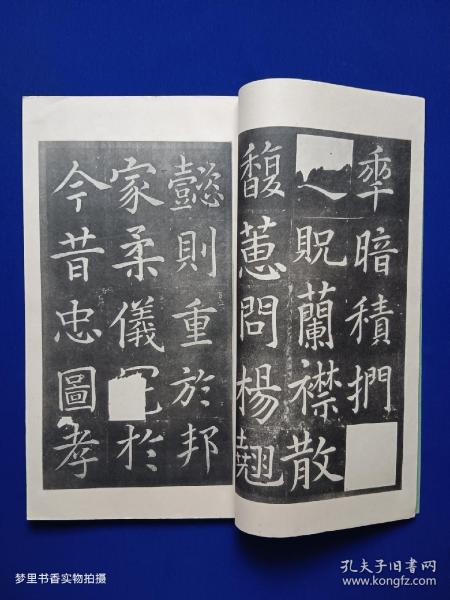 暗積捫
貺蘭襟散
馥蕙問楊翹
懿則重於邦
家柔儀於
今昔忠圖孝
梦里书香实物拍摄
孔夫子旧书网
www.kongfz.com